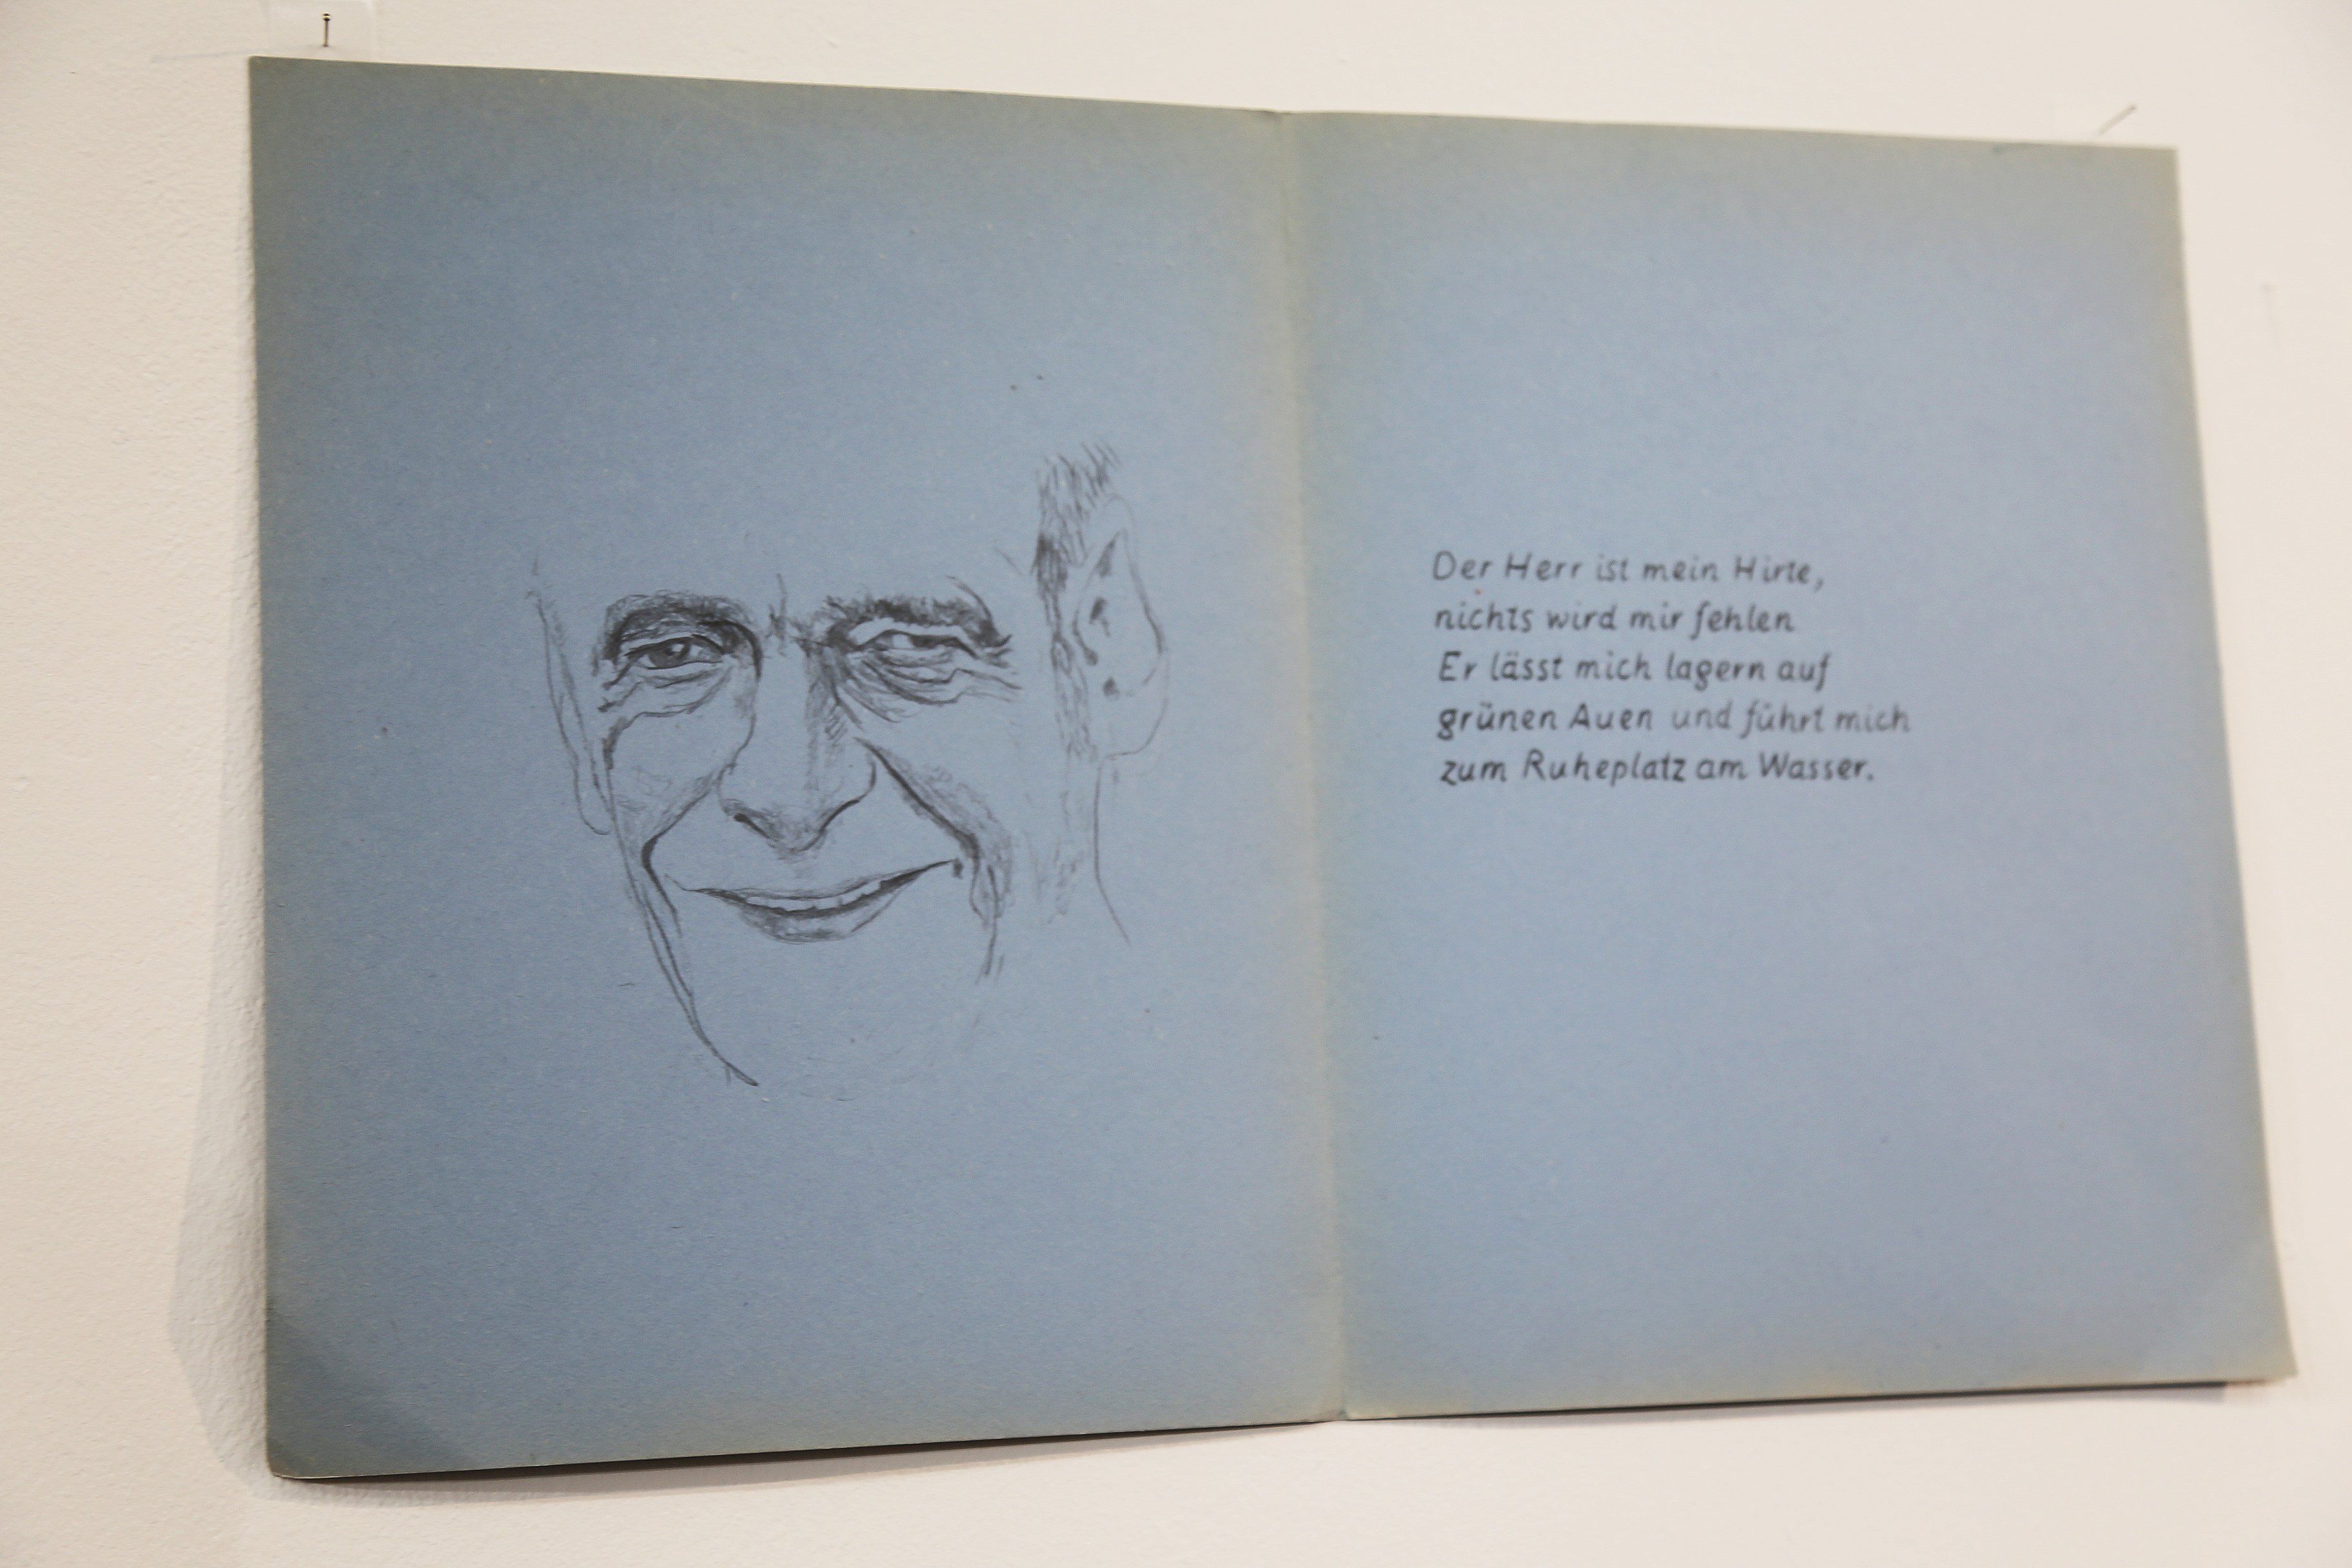 Der Herr ist mein Hirte,
nichts wird mir fehlen
Er lässt mich lagern auf
grünen Auen und führt mich
zum Ruheplatz am Wasser.